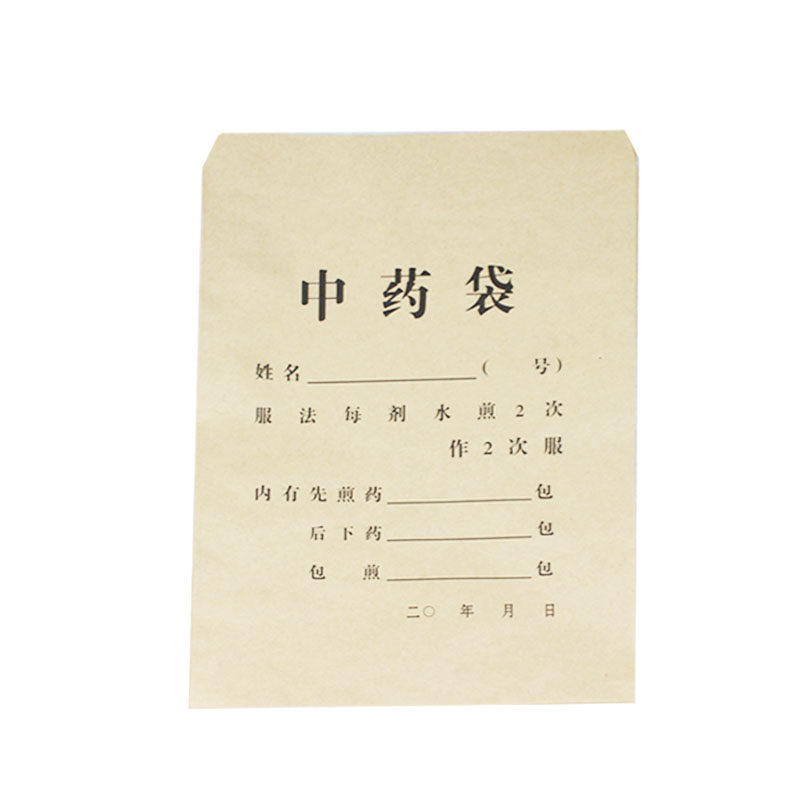 中药袋
姓名____________( 号)
服法每剂水煎2次
作2次服
内有先煎药__________包
后下药__________包
包 煎__________包
二〇 年 月 日